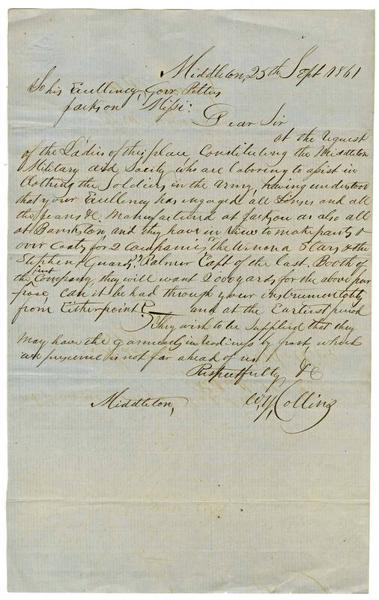 Middleton, 25th Sept 1861
To his Excellency, Gov. Pettus
Jackson Missi:
Dear Sir
at the request
of the Ladies of this place Constituting the Middleton
Military aid Society, who are laboring to assist in
Clothing the Soldiers in the Army, having understood
that your Excellency has engaged all Linseys and all
the Jeans &c Manufactured at Jackson as also all
at Bankston, and they have in View to make pants &
over Coats, for 2 Companies, the Winona Stars & the
Stephens Guards, Capt of the Last, Booth of
the first Company, they will want 2000 yards for the above pur
pose, can it be had through your instrumentality
from Either point & and at the Earliest period
They wish to be Supplied that they
May have the garments in readiness by frost which
we presume is not far ahead of us.
Respectfully &C
Middleton, Collins